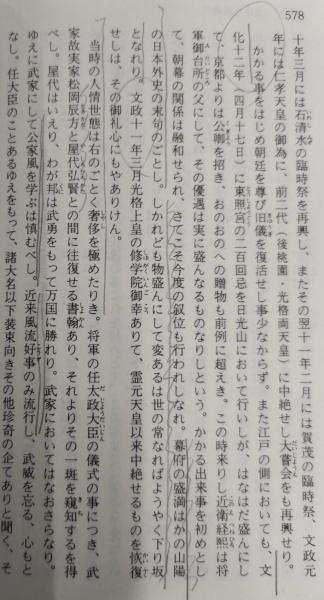 578
十年三月には石清水の臨時祭を再興し、またその翌十一年二月には賀茂の臨時祭、文政元
年には仁孝天皇の御為に、前二代（後桃園・光格両天皇）に中絶せし大嘗会をも再興せり。
かかる事をはじめ朝廷を尊び旧儀を復活せし事少なからず。また江戸の側においても、文
化十二年（四月十七日）に東照宮の二百回忌を日光山において行いしが、はなはだ盛んにし
て、京都よりは公卿を招き、おのおのへの贈物も前例に超えき。この時来りし近衛経煕は将
軍御台所の父にして、その優遇は実に盛んなるものなりしという。かかる出来事を初めとし
て、朝幕の関係は融和せられ、さてこそ今度の叙位も行われしなれ。幕府の盛満はかの山陽
の日本外史の末句のごとし。しかれども物盛んにして変あるは世の常なればようやく下り坂
となれり。文政十一年三月光格上皇の修学院御幸ありて、霊元天皇以来中絶せるものを恢復
せしは、その御礼心にもやありけん。
当時の人情世態は右のごとく奢侈を極めたりき。将軍の任太政大臣の儀式の事につき、武
家故実家松岡辰方と屋代弘賢との間に往復せる書翰あり、それよりその一斑を窺知するを得
べし。屋代はいえり、わが邦は武勇をもって万国に勝れり。武家においてはなおさらなり。
ゆえに武家にして公家風を学ぶは慎むべし。近来風流好事のみ流行し、武威を忘る、心もと
なし。任大臣のことあるゆえをもって、諸大名以下装束向きその他珍奇の企てありと聞く、そ